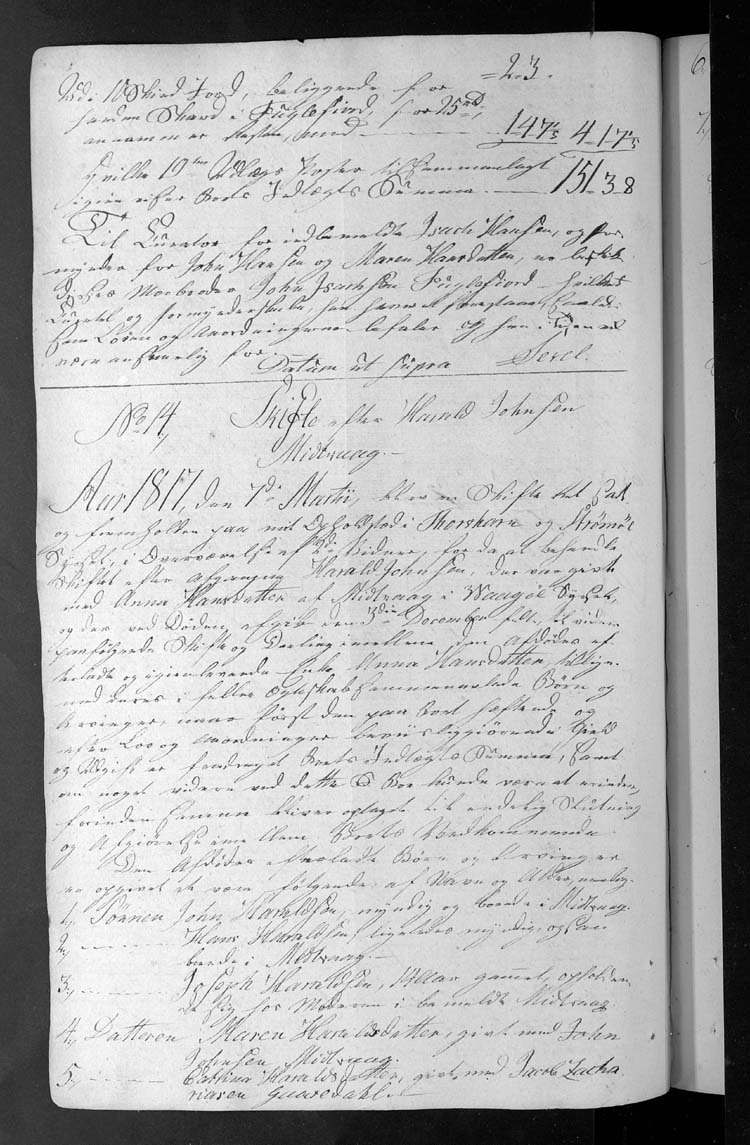 Udi 10 Skind Jord, beliggende for = 2 3.
Skard i Fuglefiord, for 25
annammer Resten, med 147 4 17
hvilke 19 Udlægs Poster tilsammenlagt
igien Boets Indlægts Summa. 151 3 8
Til Curator for indbemeldte Isach Hansen, og For-
mynder for John Hansen og Maren Hansdatter, er
deres Morbroder John Isachsen Fuglefiord, hvilket
Curatel og formynderskab, han haver at forestaae,
Loven og Anordningerne befaler og han i Tiden vil
være ansvarlig for.
Datum ut supra
No 14, Skifte efter Harald Johnsen
Midtvaag.
Aar 1817, den 7de Martii, blev en Skifte Ret sat
og fremholden paa mit Opholdsted i Thorshavn og Strömöe
Syssel, i Overværelse af 2de Vidner, for da at behandle
Skiftet efter afgangne Harald Johnsen, der var givt
med Anna Hansdatter af Midtvaag i Waagöe Syssel,
og der ved Döden afgik den 3die December
paafølgende Skifte og Deeling imellem den afdødes ef-
terladte og igienlevende Enke Anna Hansdatter, tillige-
med deres i fælles Ægteskab sammenavlede Börn og
Arvinger, naar først den paa Boet hæftende og
efter Lov og Anordninger beviisliggiorende Gield
og Udgift er fradraget Boets Indlægts Summa, samt
om noget videre ved dette Boe kunde være at erindre,
forinden samme bliver optaget til endelig Slutning
og Afgiörelse imellem Boets Vedkommende.
Den Afdødes efterladte Börn og Arvinger
er opgivet at være følgende af Navn og Alder, nemlig:
1, Sönnen John Haraldsen, myndig og boende i Midtvaag.
2, — Hans Haraldsen ligeledes myndig, ogsaa
boende i Midtvaag.
3, — Joseph Haraldsen, Aar gammel, opholden-
de sig hos Moderen i bemeldte Midtvaag.
4, Datteren Maren Haraldsdatter, givt med John
Johnsen Midtvaag.
5, — Haraldsdatter, givt med Jacob Zacha
riasen Giaaredahl.